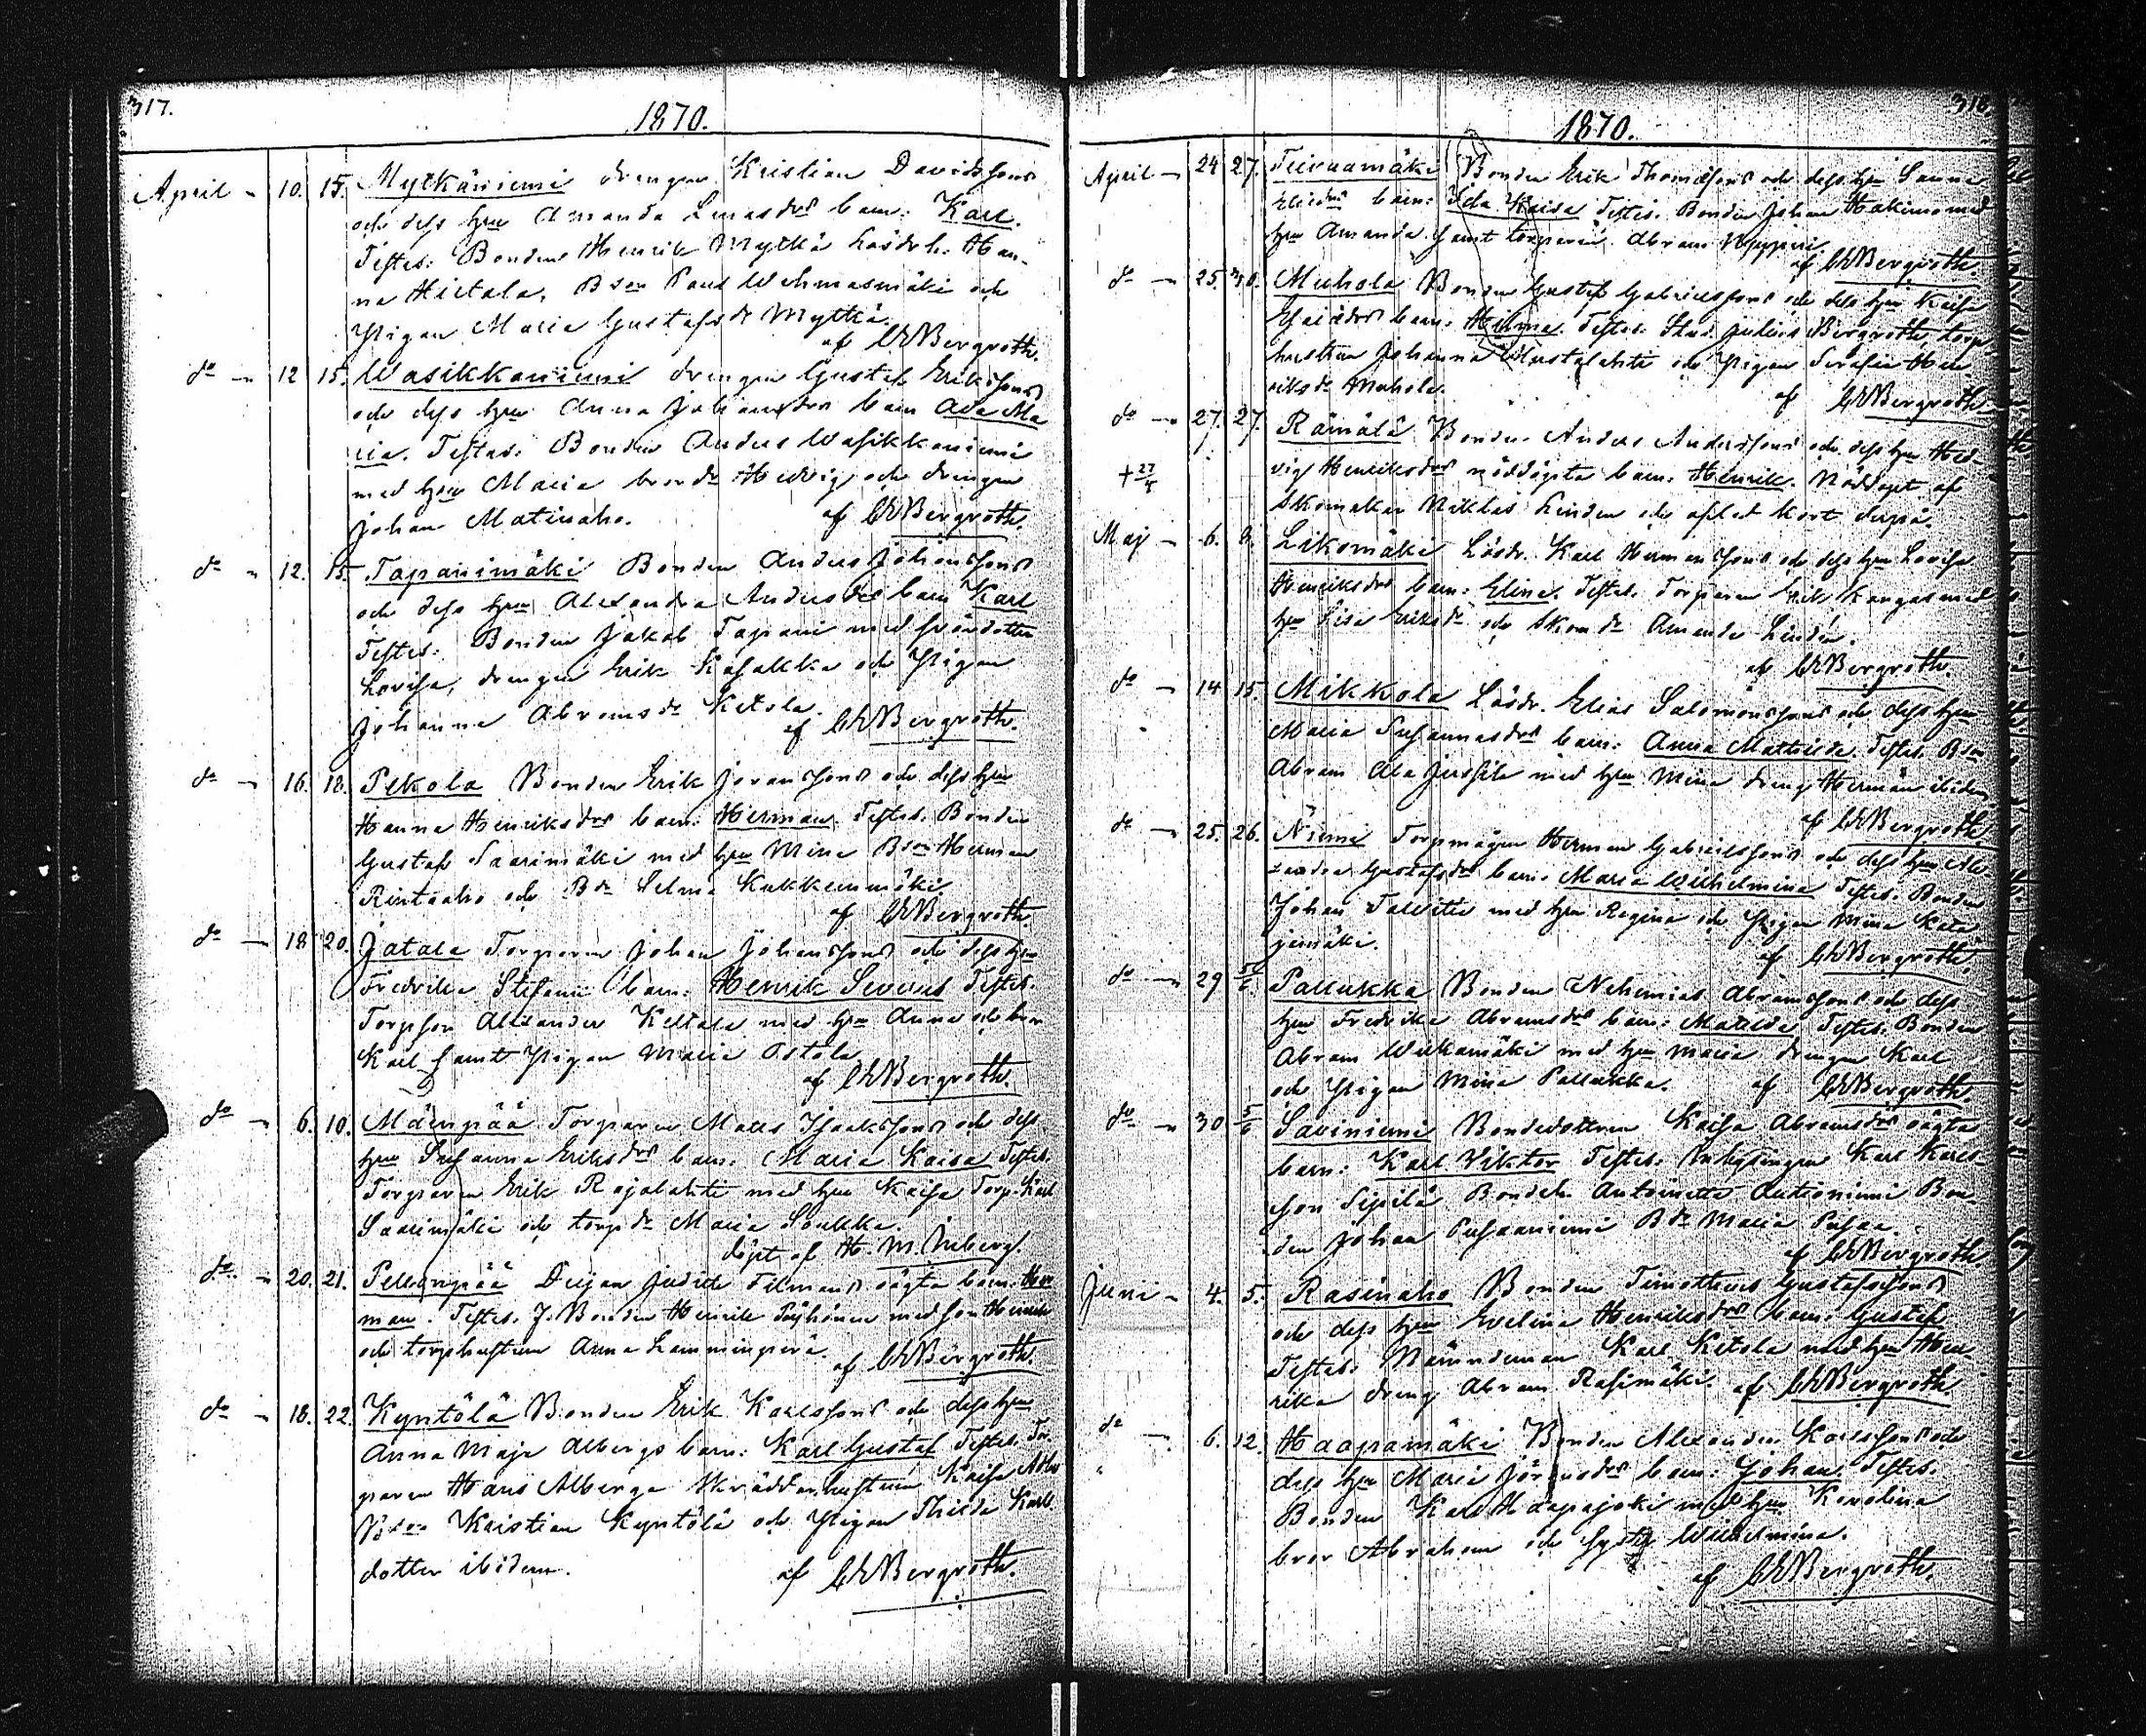 317.
1870.
April - 10. 15. Mytkäniemi drengen Kristian Davidssons
och dess hru Amanda Lucasdrs barn: Karl.
Testes: Bonden Henrik Mytkä Lösdr h. Han-
na Hietala, Bson Paul Wehmasmäki och
Pigan Maria Gustafsdr Mytkä.
af Bergroth.
do - 12 15. Wasikkaniemi drengen Gustaf Erikssons
och dess hru Anna Johansdrs barn Ada Ma
ria. Testes: Bonden Anders Wasikkaniemi
med hru Maria brordr Hedvig och drengen
Johan Matinaho. af Bergroth.
do - 12. 15. Tapanimäki Bonden Anders Johanssons
och dess hru Alexandra Andersdrs barn Karl
Testes: Bonden Jakob Tapani med sondotter
Lovisa, drengen Erik Kasakka och Pigan
Johanna Abramsdr Ketola.
af Bergroth.
do - 16. 18. Pekola Bonden Erik Joranssons och dess hru
Hanna Henriksdrs barn: Herman. Testes. Bonden
Gustaf Saarimäki med hru Mina Bson Herman
Rintaaho och Bdr Selma Kukkenmäki
af Bergroth.
do - 18 20. Jatala Torparen Johan Johanssons och dess hru
Fredrika Stefansd barn: Henrik Severus Testes.
Torpson Alexander Keltala med hru Anna och bror
Karl samt Pigan Maria Ostola
af Bergroth.
do - 6. 10. Mäenpää Torparen Matts Isakssons och dess
hru Susanna Eriksdrs barn: Maria Kaisa Testes.
Torparen Erik Rajalahti med hru Kaisa Torp. Karl
Saarimäki och torpdr Maria Soukka.
döpt af H. M. Inberg.
do. - 20. 21. Pellinpää Deijan Judith Tilmans oägta barn: Her
man. Testes. J. Bonden Henrik Pöyhönen med son Henrik
och torphustrun Anna Lamminperä.
af Bergroth.
do - 18. 22. Kyntölä Bonden Erik Karlssons och dess hru
Anna Maja Albergs barn: Karl Gustaf Testes. Tor
paren Hans Alberga Skräddarhustrun Kaisa
Bson Kristian Kyntölä och Pigan Thilda Karls
dotter ibidem. af Bergroth.
318.
1870.
April - 24 27. Bonden Erik Thomassons och dess hru Sanna
Eliedrs barn: Ida Kaisa Testes. Bonden Johan Hakimo med
hru Amanda samt torparen Abram Nypperi
af Bergroth.
do - 25. 30. Muhola Bonden Gustaf Gabrielssons och dess hru Kaisa
Esaiädrs barn: Hilma. Testes. Stud. Julius Bergroth, torp-
hustrun Johanna Mustalahti och Pigan Serafia Hen
riksdr Muhola. af Bergroth.
do - 27. 27. Rämälä Bonden Anders Anderssons och dess hru Hed-
+ 27/4 vig Henriksdrs nöddöpta barn: Henrik. Nöddöpt af
Skomakar Niklas Linden och afled kort derpå.
Maj - 6. 8. Likomäki Lösdr. Karl Hermanssons och dess hru Lovisa
Henriksdrs barn: Elina. Testes. Torparen Erik Kangas med
hru Lisa Eriksdr och Skom dr Amanda Lindén.
af Bergroth.
do - 14 15. Mikkola Lösdr. Elias Salomonssons och dess hru
Maria Susannasdrs barn: Anna Mathilda. Testes. Bson
Abram Ala Jussila med hru Mina dreng Herman ibidem
af Bergroth.
do - 25. 26. Niemi Torpmågen Herman Gabrielssons och dess hru Alex-
andra Gustafsdrs barn: Maria Wilhelmina Testes. Bonden
Johan Talvitie med hru Regina och Pigan Mina Kata
jamäki. af Bergroth.
do - 29 5/6 Palukka Bonden Nehemias Abramssons och dess
hru Fredrika Abramsdrs barn: Matilda Testes. Bonden
Abram Wirkamäki med hru Maria drengen Karl
och Pigan Mina Pallukka. af Bergroth.
do - 30 5/6 Saviniemi Bondedottren Kaisa Abramsdrs oägta
barn: Karl Viktor Testes: Inhysingen Karl Karls-
son Sipilä Bondeh. Antoinetta Autioniemi Bon-
den Johan Pusaaniemi Bdr Maria Pusaa
af Bergroth.
Juni - 4. 5. Rasinaho Bonden Timotheus Gustafssons
och dess hru Evelina Henriksdrs barn: Gustaf
Testes. Nämndeman Karl Ketola med hru Hen-
rika dreng Abram Rasimäki. af Bergroth.
do - 6. 12. Haapamäki Bonden Alexander Karlssons och
dess hru Maria Jöransdrs barn: Johan. Testes.
Bonden Karl Haapajoki med hru Karolina
bror Abraham och syster Wilhelmina.
af Bergroth.